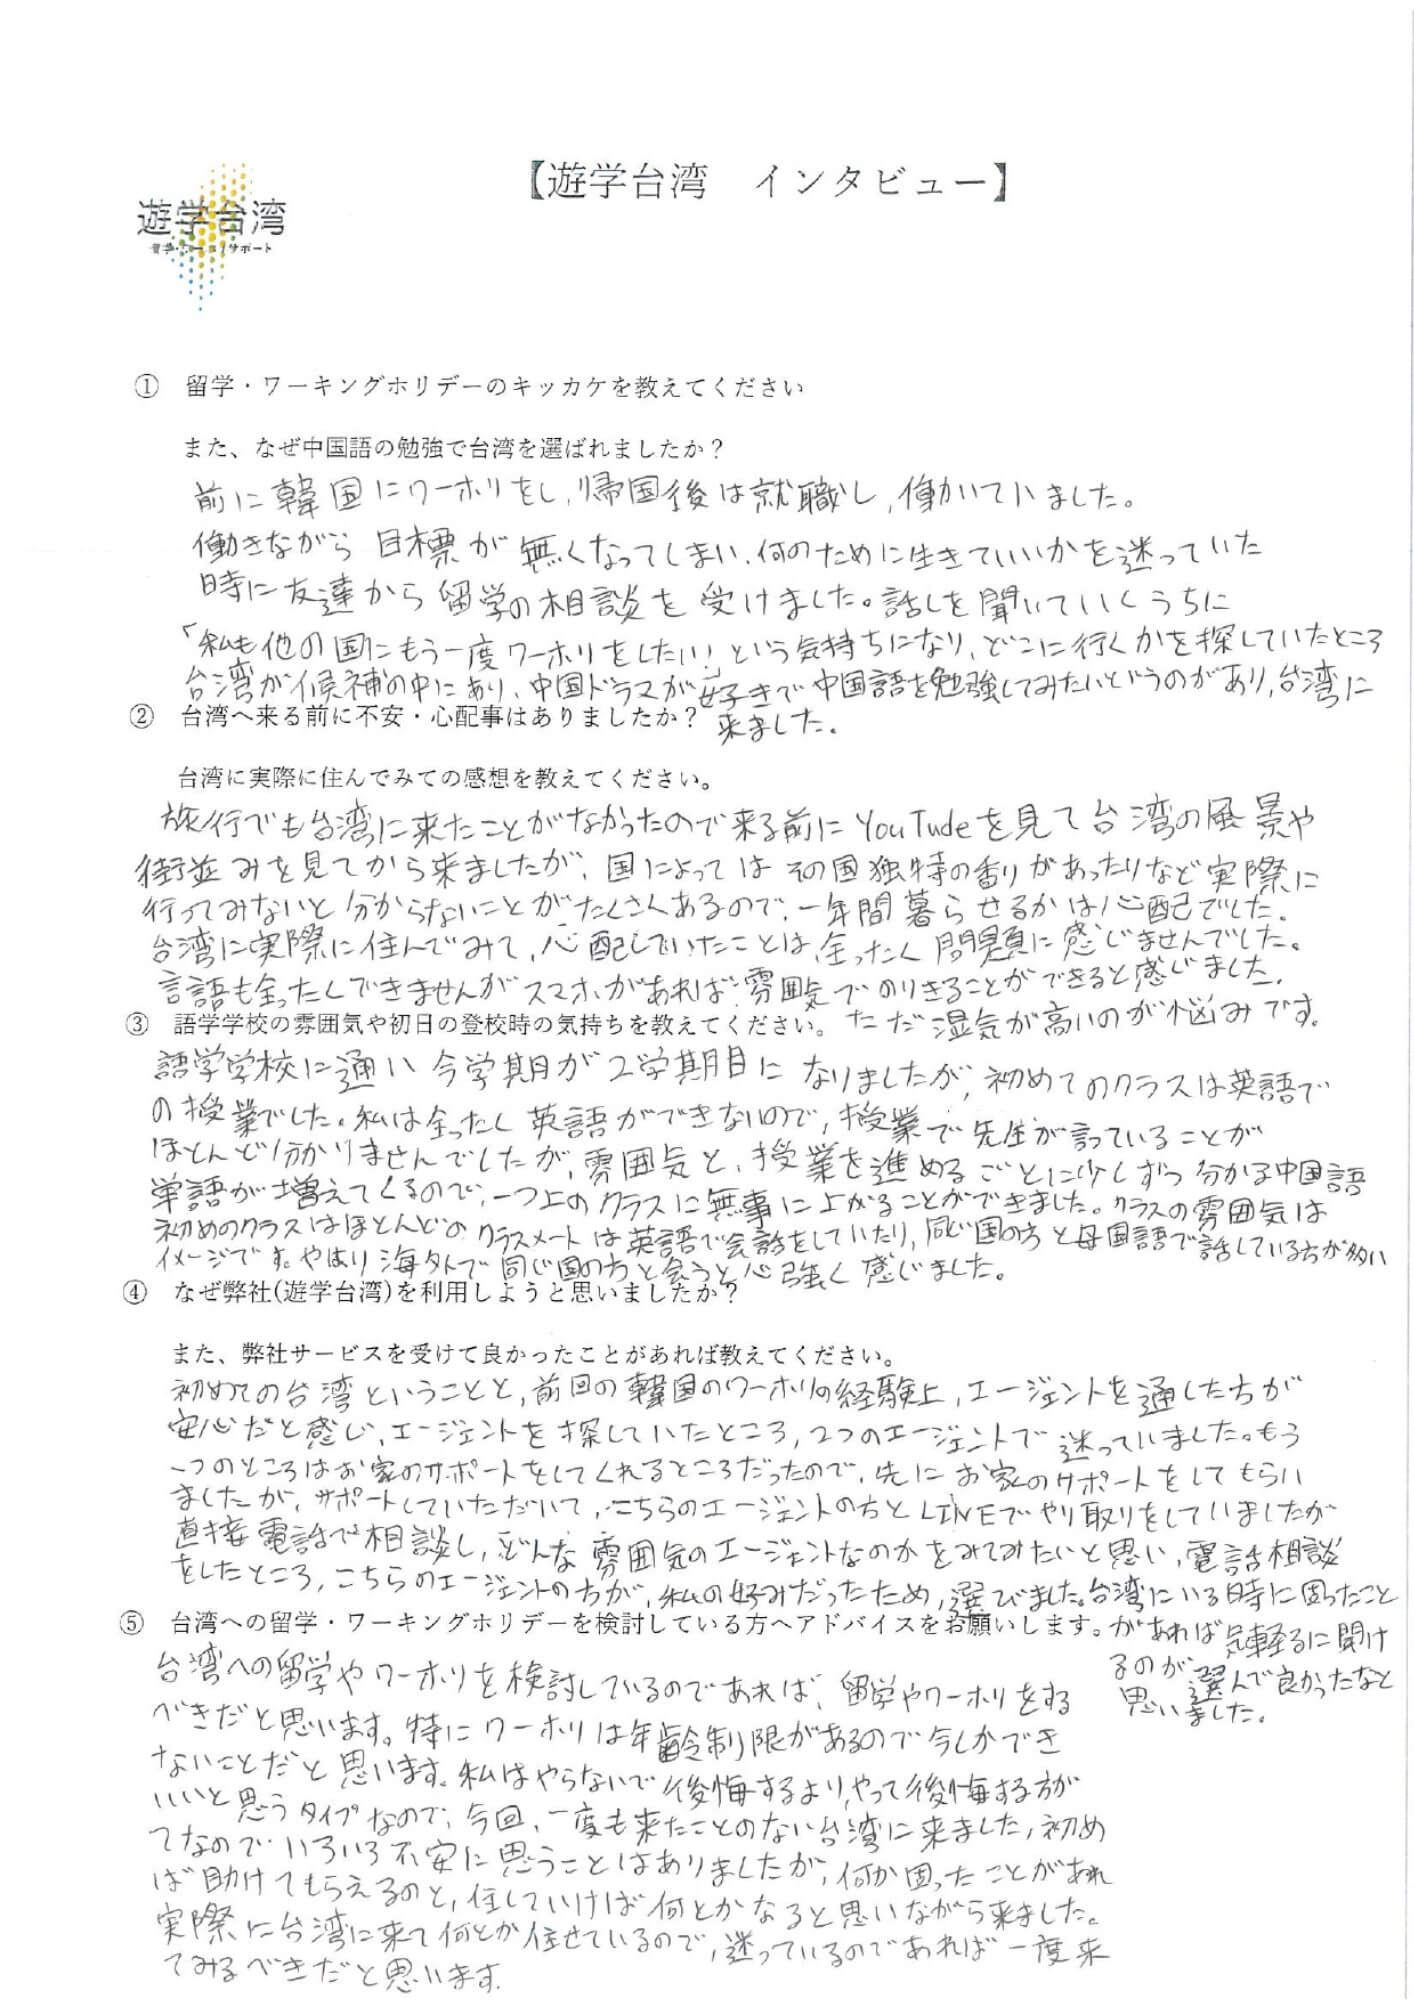 【遊学台湾　インタビュー】
遊学台湾
サポート
①　留学・ワーキングホリデーのキッカケを教えてください
また、なぜ中国語の勉強で台湾を選ばれましたか？
前に韓国にワーホリをし、帰国後は就職し、働いていました。
働きながら目標が無くなってしまい、何のために生きていいかを迷っていた
時に友達から留学の相談を受けました。話しを聞いていくうちに
「私も他の国にもう一度ワーホリをしたい！」という気持ちになり、どこに行くかを探していたところ
台湾が候補の中にあり、中国ドラマが好きで中国語を勉強してみたいというのがあり、台湾に
来ました。
②　台湾へ来る前に不安・心配事はありましたか？
台湾に実際に住んでみての感想を教えてください。
旅行でも台湾に来たことがなかったので来る前にYouTudeを見て台湾の風景や
街並みを見てから来ましたが、国によってはその国独特の香りがあったりなど実際に
行ってみないと分からないことがたくさんあるので、一年間暮らせるかは心配でした。
台湾に実際に住んでみて、心配していたことは全ったく問題に感じませんでした。
言語も全ったくできませんがスマホがあれば雰囲気でのりきることができると感じました。
ただ湿気が高いのが悩みです。
③　語学学校の雰囲気や初日の登校時の気持ちを教えてください。
語学学校に通い今学期が2学期目になりましたが、初めてのクラスは英語で
の授業でした。私は全ったく英語ができないので、授業で先生が言っていることが
ほとんど分かりませんでしたが、雰囲気と、授業を進めるごとに少しずつ分かる中国語
単語が増えてくるので、一つ上のクラスに無事に上がることができました。クラスの雰囲気は
初めのクラスはほとんどのクラスメートは英語で会話をしていたり、同じ国の方と母国語で話している方が多い
イメージです。やはり海外で同じ国の方と会うと心強く感じました。
④　なぜ弊社(遊学台湾)を利用しようと思いましたか？
また、弊社サービスを受けて良かったことがあれば教えてください。
初めての台湾ということと、前回の韓国のワーホリの経験上、エージェントを通した方が
安心だと感じ、エージェントを探していたところ、2つのエージェントで迷っていました。もう
一つのところはお家のサポートをしてくれるところだったので、先にお家のサポートをしてもらい
ましたが、サポートしていただいて、こちらのエージェントの方とLINEでやり取りをしていましたが
直接電話で相談し、どんな雰囲気のエージェントなのかをみてみたいと思い、電話相談
をしたところ、こちらのエージェントの方が、私の好みだったため、選びました。台湾にいる時に困ったこと
があれば気軽るに聞け
るのが、選んで良かったなと
思いました。
⑤　台湾への留学・ワーキングホリデーを検討している方へアドバイスをお願いします。
台湾への留学やワーホリを検討しているのであれば、留学やワーホリをする
べきだと思います。特にワーホリは年齢制限があるので今しかでき
ないことだと思います。私はやらないで後悔するより、やって後悔する方が
いいと思うタイプなので、今回、一度も来たことのない台湾に来ました、初め
てなのでいろいろ不安に思うことはありましたが、何か困ったことがあれ
ば助けてもらえるのと、住していけば何とかなると思いながら来ました。
実際に台湾に来て何とか住せているので、迷っているのであれば一度来
てみるべきだと思います。